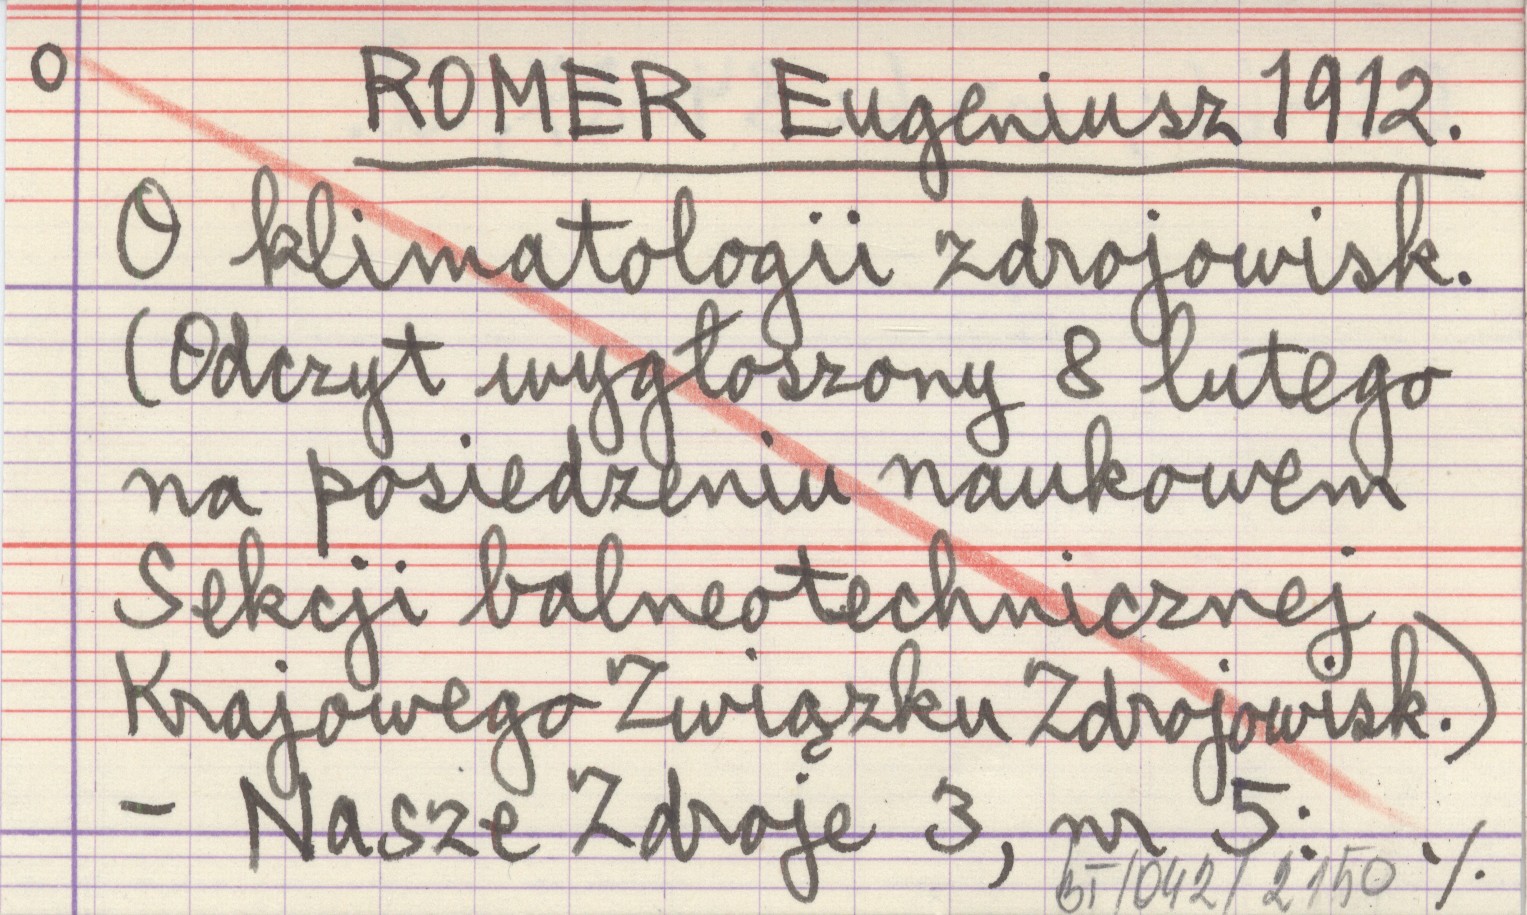 O ROMER Eugeniusz 1912.
O klimatologii zdrojowisk.
(Odczyt wygłoszony 8 lutego
na posiedzeniu naukowem
Sekcji balneotechnicznej
Krajowego Związku Zdrojowisk.)
- Nasze Zdroje 3, nr 5: ./.
BT/042/2150